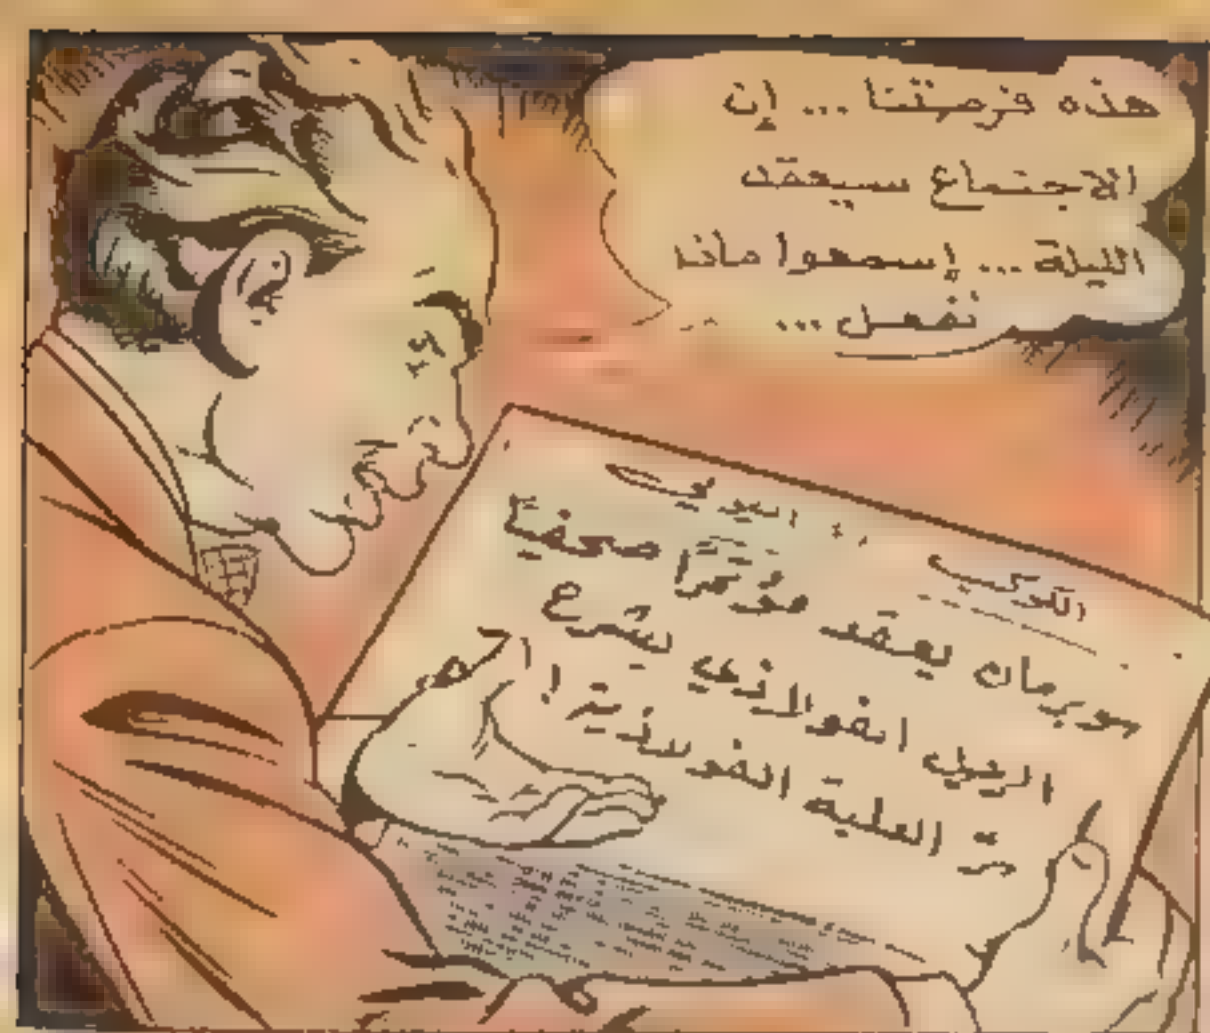 هذه فرصتنا ... إن
الاجتماع سيعقد
الليلة ... إسمعوا ماذا
نفعل ...
الكوكب اليومي
سوبرمان يعقد مؤتمرًا صحفيًا
الرجل الفولاذي يشرع
سرّ العلبة الفولاذية !